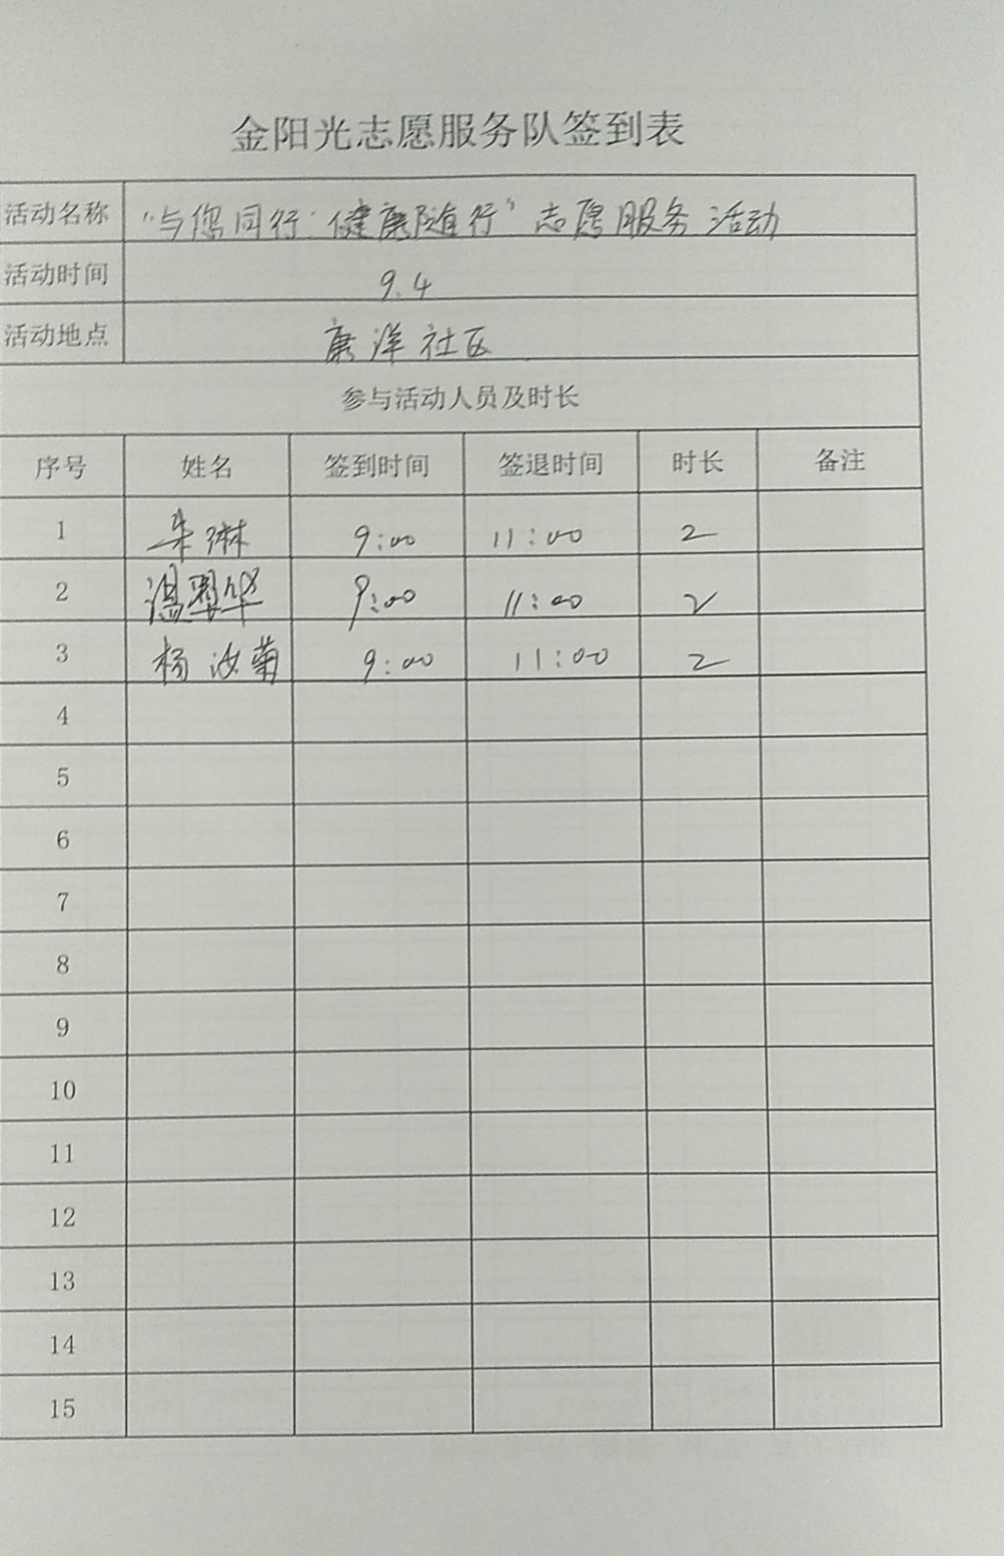 金阳光志愿服务队签到表
活动名称 “与您同行·健康随行”志愿服务活动
活动时间 9.4
活动地点 康洋社区
参与活动人员及时长
序号 姓名 签到时间 签退时间 时长 备注
1 朱琳 9:00 11:00 2
2 温翠华 9:00 11:00 2
3 杨汝菊 9:00 11:00 2
4
5
6
7
8
9
10
11
12
13
14
15